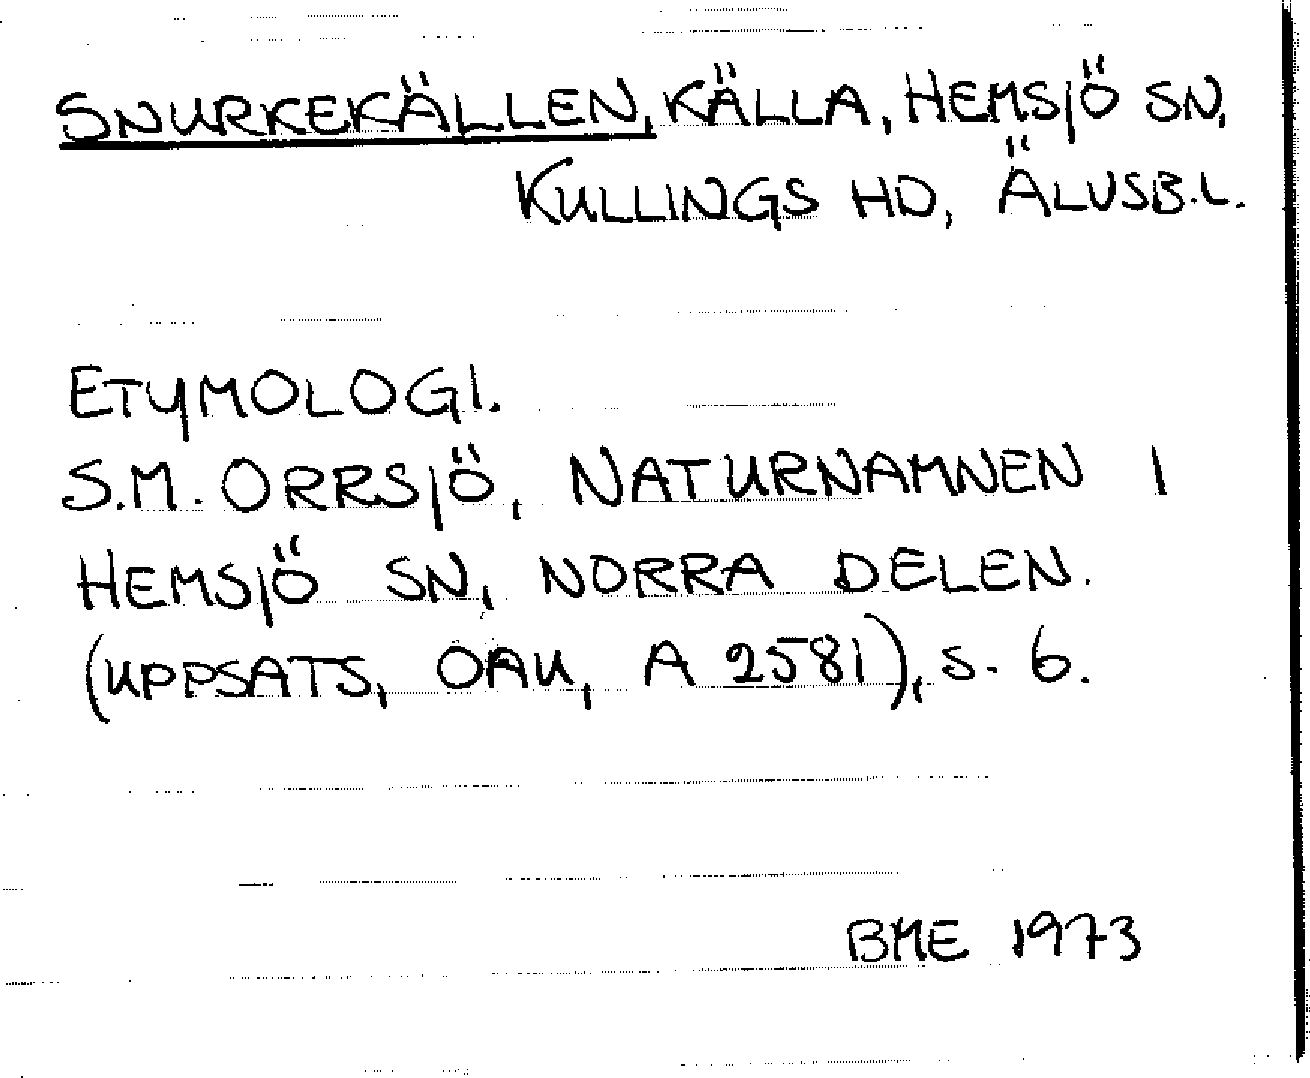 SNURKEKÄLLEN, KÄLLA, HEMSJÖ SN,
KULLINGS HD, ÄLVSB.L.
ETYMOLOGI.
S.M. ORRSJÖ, NATURNAMNEN I
HEMSJÖ SN, NORRA DELEN.
(UPPSATS, OAU, A 2581), S. 6.
BME 1973